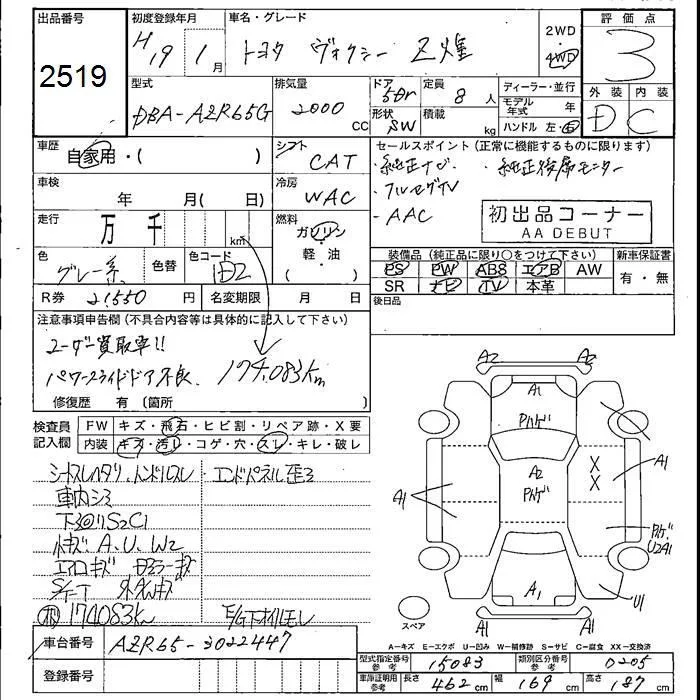 出品番号
2519
初度登録年月
H19 1月
車名・グレード
トヨタ ヴォクシー Z煌
2WD
4WD
評価点
3
外装 内装
D C
型式
DBA-AZR65G
排気量
2000 CC
ドア
5Dr
形状
SW
定員
8人
積載
kg
ディーラー・並行
モデル年式 年
ハンドル 左・右
車歴
自家用・( )
シフト
CAT
セールスポイント (正常に機能するものに限ります)
・純正ナビ ・純正後席モニター
・フルセグTV
・AAC
初出品コーナー
AA DEBUT
車検
年 月( 日)
冷房
WAC
走行
万 千 km
燃料
ガソリン
・
軽・油
( )
色
グレー系
色替
色コード
1D2
装備品 (純正品に限り○をつけて下さい)
PS PW ABS エアB AW
SR ナビ TV 本革
新車保証書
有・無
R券 21550 円
名変期限 月 日
後日品
注意事項申告欄 (不具合内容等は具体的に記入して下さい)
ユーザー買取車!!
パワースライドドア不良、 174,083km
修復歴 有 (箇所 )
検査員記入欄
FW キズ・飛石・ヒビ割・リペア跡・X要
内装 キズ・汚レ・コゲ・穴・スレ・キレ・破レ
エンドパネル歪ミ
車内シミ
下廻りS2C1
A.U.W2
174083km
車台番号 AZR65-3022447
登録番号
A2 A2
A1
Pハゲ
A2
Pハゲ
X
X
A1
A1
Pハゲ
U2A1
A1
U1
A1 A1
スペア
A-キズ E-エクボ U-凹み W-補修跡 S-サビ C-腐食 XX-交換済
型式指定番号 参考 15083
類別区分番号 参考 0205
車庫証明用 参考 長さ 462 cm 幅 169 cm 高さ 187 cm